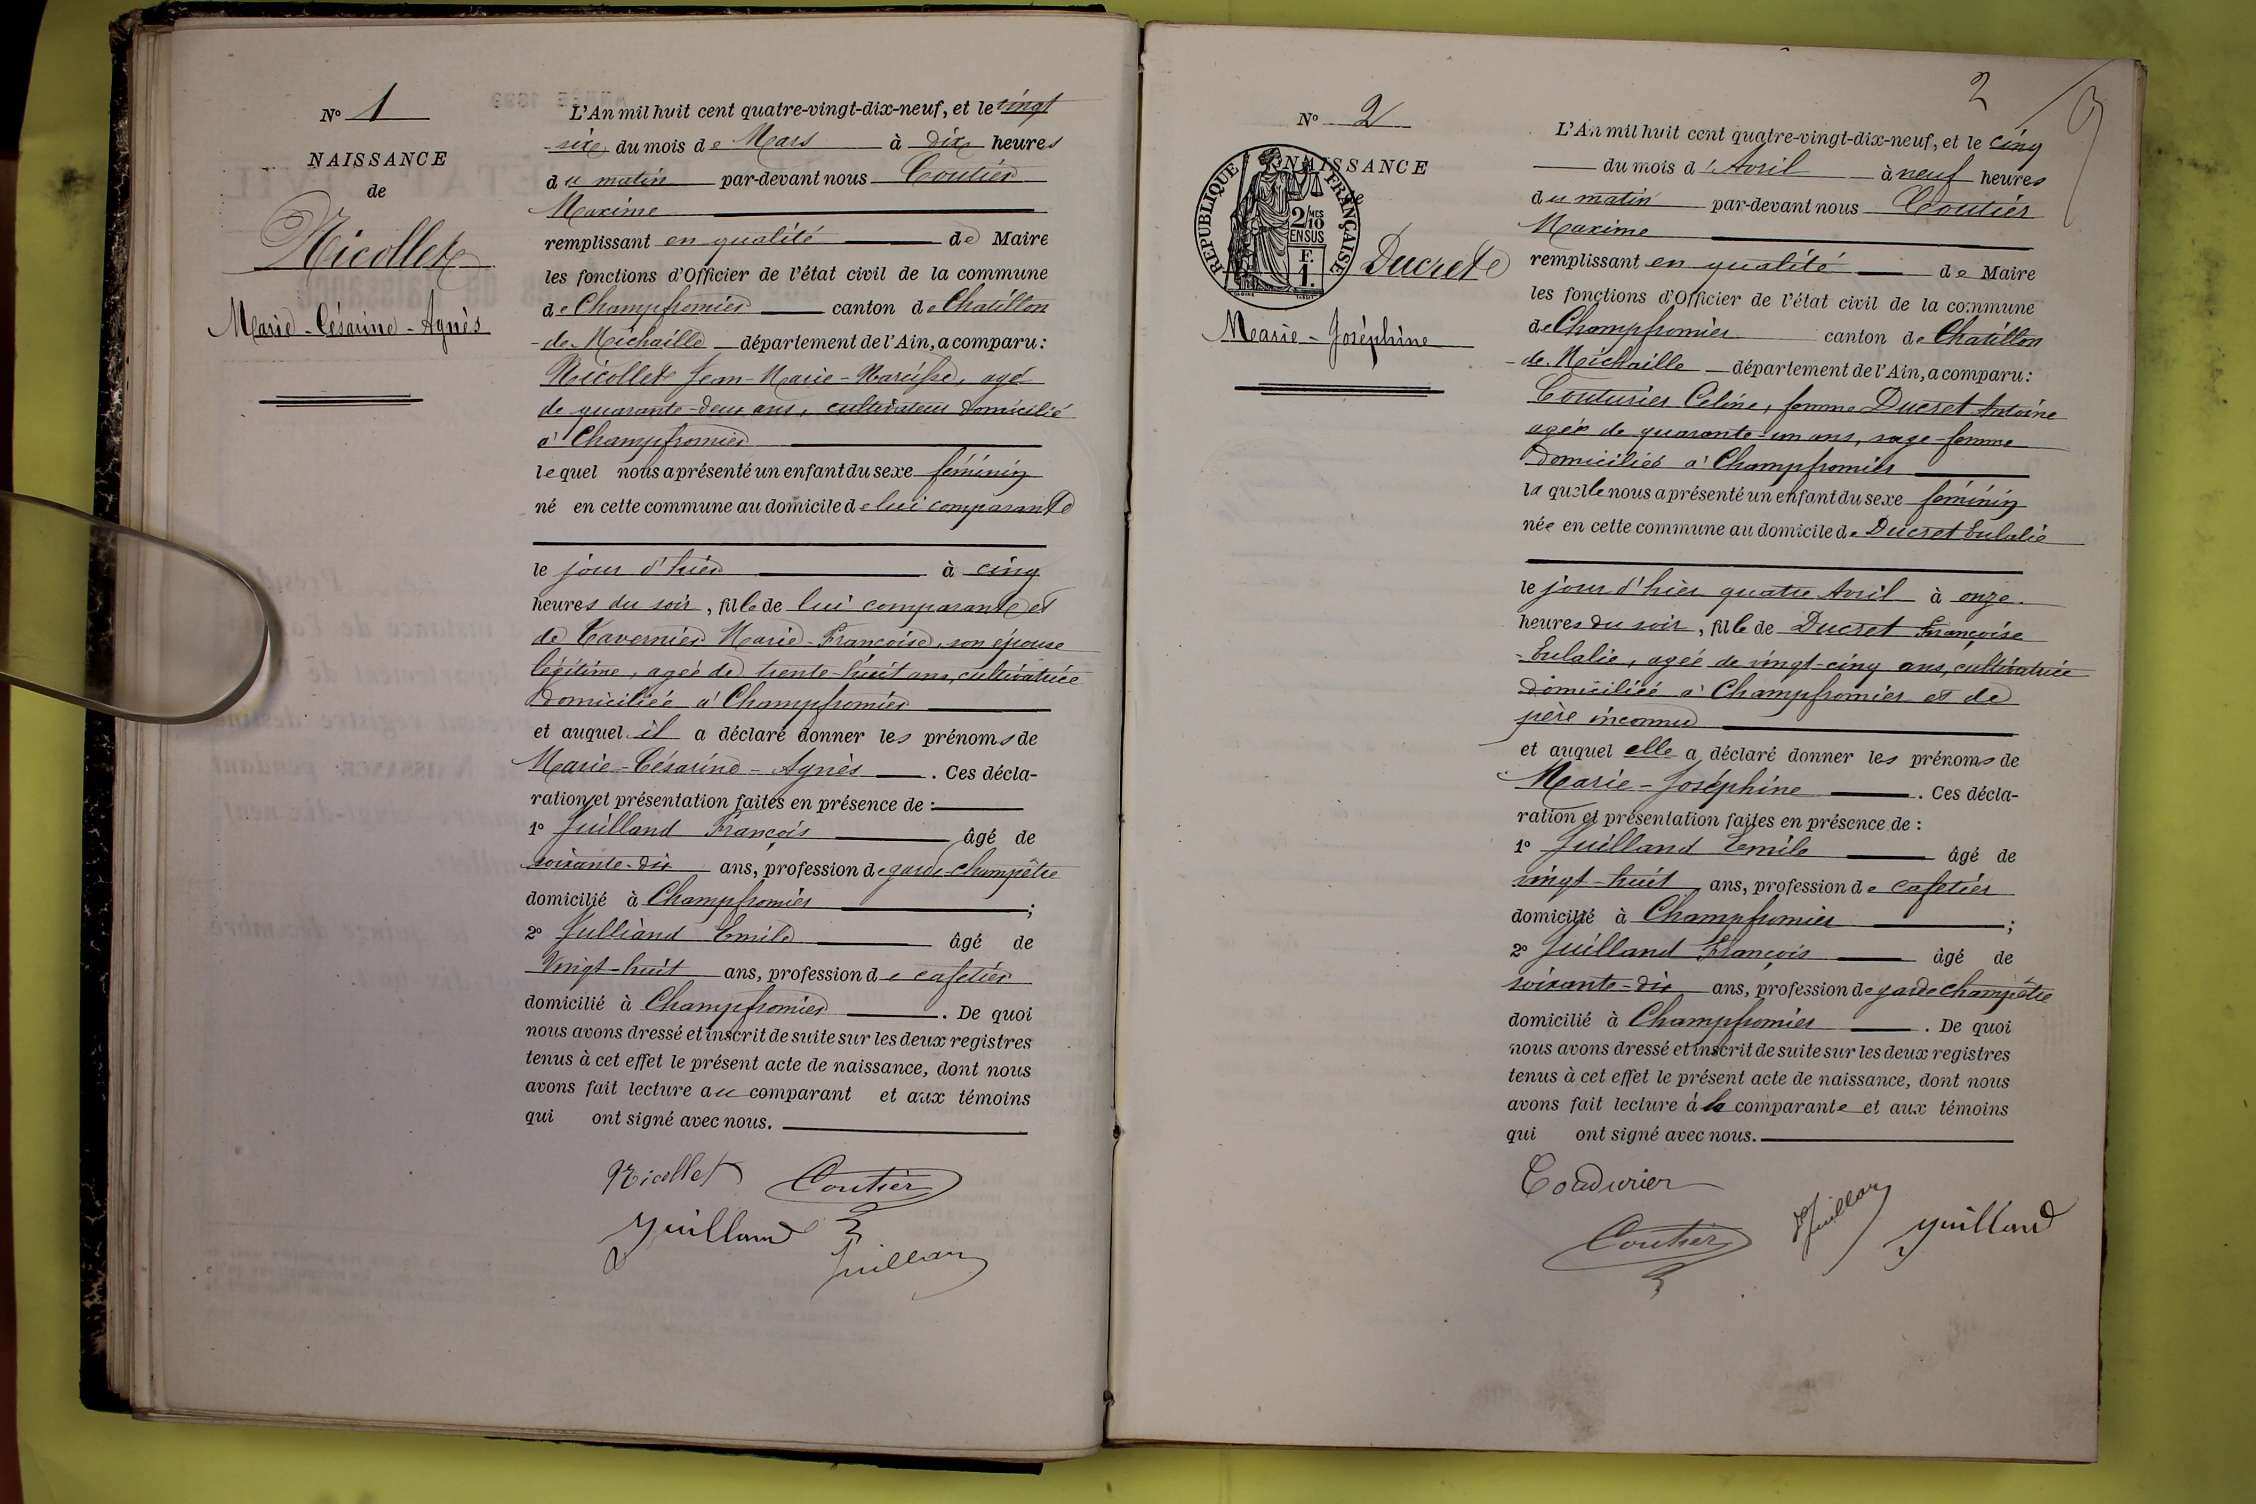 N° 1
NAISSANCE
de
Nicollet
Marie-Césarine-Agnès
L'An mil huit cent quatre-vingt-dix-neuf, et le vingt
-six du mois de Mars à dix heures
du matin par-devant nous Coutier
Maxime
remplissant en qualité de Maire
les fonctions d'Officier de l'état civil de la commune
de Champfromier canton de Chatillon
-de-Michaille département de l'Ain, a comparu :
Nicollet Jean-Marie-Narcisse, agé
de quarante-deux ans, cultivateur domicilié
à Champfromier
lequel nous a présenté un enfant du sexe féminin
né en cette commune au domicile de lui comparant
le jour d'hier à cinq
heures du soir, fille de lui comparant et
de Tavernier Marie-Françoise, son épouse
légitime, agée de trente-huit ans, cultivatrice
domiciliée à Champfromier
et auquel il a déclaré donner les prénoms de
Marie-Césarine-Agnès. Ces décla-
ration et présentation faites en présence de :
1° Juilland François âgé de
soixante-dix ans, profession de garde-champêtre
domicilié à Champfromier ;
2° Julliand Emile âgé de
Vingt-huit ans, profession de cafetier
domicilié à Champfromier. De quoi
nous avons dressé et inscrit de suite sur les deux registres
tenus à cet effet le présent acte de naissance, dont nous
avons fait lecture au comparant et aux témoins
qui ont signé avec nous.
Nicollet Coutier
Juilland
Juillan
2
N° 2
NAISSANCE
de
REPUBLIQUE FRANÇAISE
2/10 MES
EN SUS
F.
1.
Ducret
Marie-Joséphine
L'An mil huit cent quatre-vingt-dix-neuf, et le cinq
du mois d'Avril à neuf heures
du matin par-devant nous Coutier
Maxime
remplissant en qualité de Maire
les fonctions d'Officier de l'état civil de la commune
de Champfromier canton de Chatillon
-de-Michaille département de l'Ain, a comparu :
Couturier Celine, femme Ducret Antoine
agée de quarante-un ans, sage-femme
domiciliée à Champfromier
laquelle nous a présenté un enfant du sexe féminin
née en cette commune au domicile de Ducret Eulalie
le jour d'hier quatre Avril à onze
heures du soir, fille de Ducret Françoise
-Eulalie, agée de vingt-cinq ans, cultivatrice
domiciliée à Champfromier et de
père inconnu
et auquel elle a déclaré donner les prénoms de
Marie-Joséphine. Ces décla-
ration et présentation faites en présence de :
1° Juilland Emile âgé de
vingt-huit ans, profession de cafetier
domicilié à Champfromier ;
2° Juilland François âgé de
soixante-dix ans, profession de garde champêtre
domicilié à Champfromier. De quoi
nous avons dressé et inscrit de suite sur les deux registres
tenus à cet effet le présent acte de naissance, dont nous
avons fait lecture à la comparante et aux témoins
qui ont signé avec nous.
Juillan
Coutier Juilland